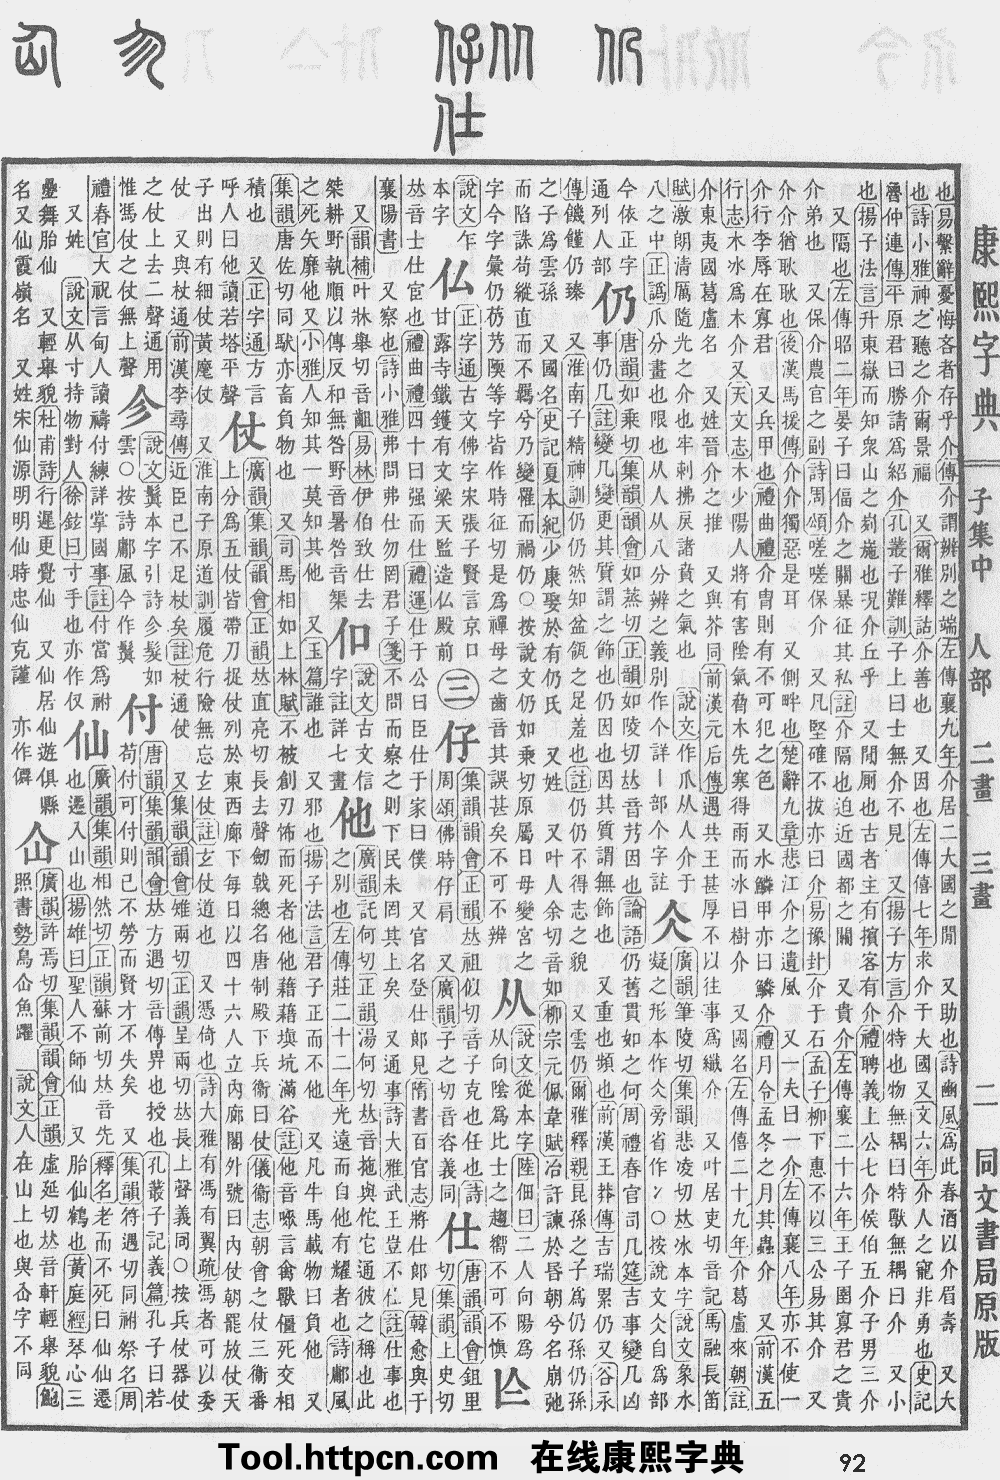 康熙字典 子集中 人部 二畫 三畫 二 同文書局原版
也易繫辭憂悔吝者存乎介傳介謂辨別之端左傳襄九年介居二大國之閒 又助也詩豳風爲此春酒以介眉壽 又大
也詩小雅神之聽之介爾景福 又爾雅釋詁介善也 又因也左傳僖七年求介于大國又文六年介人之寵非勇也史記
魯仲連傳平原君曰勝請爲紹介孔叢子難訓子上曰士無介不見 又揚子方言介特也物無耦曰特獸無耦曰介 又小
也揚子法言升東嶽而知衆山之峛崺也況介丘乎 又閒厠也古者主有擯客有介禮聘義上公七介侯伯五介子男三介
又隔也左傳昭二年晏子曰偪介之關暴征其私註介隔也迫近國都之關 又貴介左傳襄二十六年王子圍寡君之貴
介弟也 又保介農官之副詩周頌嗟嗟保介 又凡堅確不拔亦曰介易豫卦介于石孟子柳下惠不以三公易其介 又
介介猶耿耿也後漢馬援傳介介獨惡是耳 又側畔也楚辭九章悲江介之遺風 又一夫曰一介左傳襄八年亦不使一
介行李辱在寡君 又兵甲也禮曲禮介冑則有不可犯之色 又水鱗甲亦曰鱗介禮月令孟冬之月其蟲介 又前漢五
行志木冰爲木介又天文志木少陽人將有害陰氣脅木先寒得雨而冰曰樹介 又國名左傳僖二十九年介葛盧來朝註
介東夷國葛盧名 又姓晉介之推 又與芥同前漢元后傳遇共王甚厚不以往事爲纖介 又叶居吏切音記馬融長笛
賦激朗清厲隨光之介也牢剌拂戾諸賁之氣也 說文作爪从人介于
八之中正譌爪分畫也限也从人从八分辨之義別作个詳丨部个字註
仌 廣韻筆陵切集韻悲凌切𠀤冰本字說文象水
凝之形本作仌旁省作冫〇按說文仌自爲部
今依正字
通列人部
仍 唐韻如乘切集韻韻會如蒸切正韻如陵切𠀤音艿因也論語仍舊貫如之何周禮春官司几筵吉事變几凶
事仍几註變几變更其質謂之飾也仍因也因其質謂無飾也 又重也頻也前漢王莽傳吉瑞累仍又谷永
傳饑饉仍臻 又淮南子精神訓仍仍然知盆瓴之足羞也註仍仍不得志之貌又雲仍爾雅釋親昆孫之子爲仍孫仍孫
之子爲雲孫 又國名史記夏本紀少康娶於有仍氏 又姓 又叶人余切音如柳宗元佩韋賦冶訐諫於昏朝兮名崩弛
而陷誅苟縱直而不羈兮乃變罹而禍仍〇按說文仍如乘切原屬日母變宮之
字今字彙仍芿艿陾等字皆作時征切是爲禪母之齒音其誤甚矣不可不辨
从 說文從本字陸佃曰二人向陽爲
从向陰爲比士之趨嚮不可不愼
亾 說文乍
本字
仏 正字通古文佛字宋張子賢言京口
甘露寺鐵鑊有文梁天監造仏殿前
三
仔 集韻韻會正韻𠀤祖似切音子克也任也詩
周頌佛時仔肩 又廣韻子之切音咨義同
仕 唐韻韻會鉏里
切集韻上史切
𠀤音士仕宦也禮曲禮四十曰强而仕禮運仕于公曰臣仕于家曰僕 又官名登仕郞見隋書百官志將仕郞見韓愈與于
襄陽書 又察也詩小雅弗問弗仕勿罔君子箋不問而察之則下民未罔其上矣 又通事詩大雅武王豈不仕註仕事也
又韻補叶牀舉切音齟易林伊伯致仕去
桀耕野執順以傳反和無咎野音暑咎音榘
㐰 說文古文信
字註詳七畫
他 廣韻託何切正韻湯何切𠀤音拖與佗它通彼之稱也此
之別也左傳莊二十二年光遠而自他有耀者也詩鄘風
之死矢靡他又小雅人知其一莫知其他 又玉篇誰也 又邪也揚子法言君子正而不他 又凡牛馬載物曰負他 又
集韻唐佐切同馱亦畜負物也 又司馬相如上林賦不被創刃怖而死者他他藉藉塡坑滿谷註他音㗇言禽獸僵死交相
積也 又正字通方言
呼人曰他讀若塔平聲
仗 廣韻集韻韻會正韻𠀤直亮切長去聲劒戟總名唐制殿下兵衞曰仗儀衞志朝會之仗三衞番
上分爲五仗皆帶刀捉仗列於東西廊下每日以四十六人立內廊閣外號曰內仗朝罷放仗天
子出則有細仗黃麾仗 又淮南子原道訓履危行險無忘玄仗註玄仗道也 又憑倚也詩大雅有馮有翼疏馮者可以委
仗 又與杖通前漢李尋傳近臣已不足杖矣註杖通仗 又集韻韻會雉兩切正韻呈兩切𠀤長上聲義同〇按兵仗器仗
之仗上去二聲通用
惟馮仗之仗無上聲
㐱 說文鬒本字引詩㐱髮如
雲〇按詩鄘風今作鬒
付 唐韻集韻韻會𠀤方遇切音傅畀也授也孔叢子記義篇孔子曰若
苟付可付則己不勞而賢才不失矣 又集韻符遇切同祔祭名周
禮春官大祝言甸人讀禱付練詳掌國事註付當爲祔
又姓 說文从寸持物對人徐鉉曰寸手也亦作仅
仙 廣韻集韻相然切正韻蘇前切𠀤音先釋名老而不死曰仙仙遷
也遷入山也揚雄曰聖人不師仙 又胎仙鶴也黃庭經琴心三
疊舞胎仙 又輕舉貌杜甫詩行遲更覺仙 又仙居仙遊俱縣
名又仙霞嶺名 又姓宋仙源明明仙時忠仙克謹 亦作僊
仚 廣韻許焉切集韻韻會正韻虛延切𠀤音軒輕舉貌鮑
照書勢鳥仚魚躍 說文人在山上也與仚字不同
Tool.httpcn.com 在线康熙字典 92